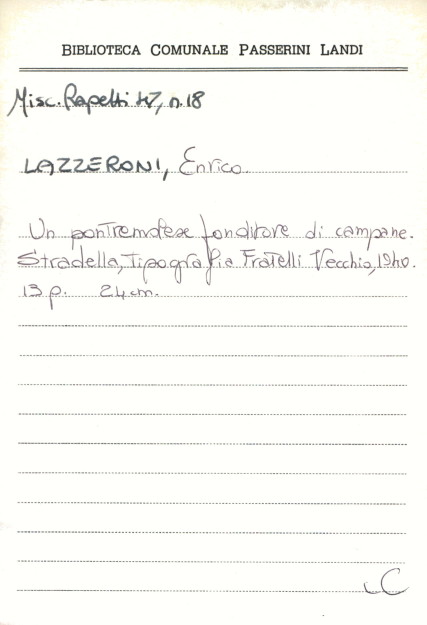 BIBLIOTECA COMUNALE PASSERINI LANDI
Misc. Rapetti 47, n. 18
LAZZERONI, Enrico.
Un pontremolese fonditore di campane.
Stradella, Tipografia Fratelli Vecchio, 1940.
13 p. 24 cm.